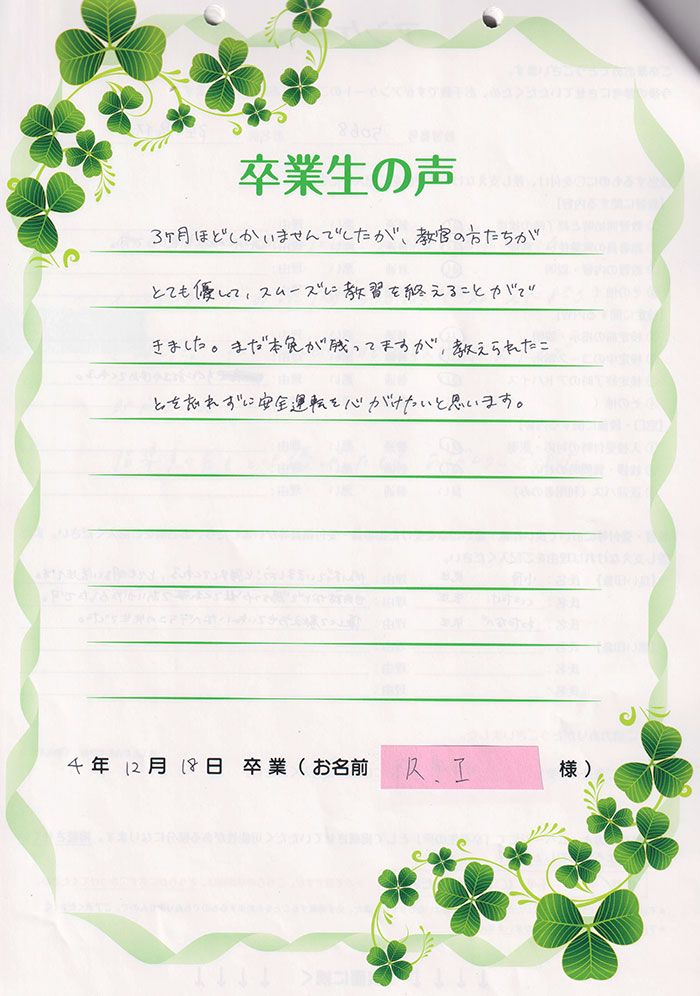 卒業生の声
3ヶ月ほどしかいませんでしたが、教官の方たちが
とても優しくて、スムーズに教習を終えることがで
きました。まだ本免が残ってますが、教えられたこ
とを忘れずに安全運転を心がけたいと思います。
4年12月18日 卒業(お名前 R.I 様)